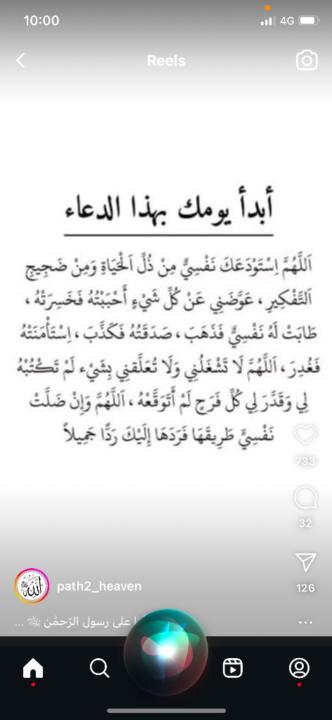 10:00
4G
Reels
أبدأ يومك بهذا الدعاء
اَللَّهُمَّ اِسْتَوْدَعَكَ نَفْسِيَّ مِنْ ذُلِّ اَلْحَيَاةِ وَمِنْ ضَجِيجِ
اَلتَّفْكِيرِ ، عَوَّضَنِي عَنْ كُلِّ شَيْءِ أَحْبَبْتُهُ فَخَسِرَتْهُ ،
طَابَتْ لَهُ نَفْسِيٌّ فَذَهَبَ ، صَدَقَتُهُ فَكَذَّبَ ، اِسْتَأْمَنَتْهُ
فَغُدِرَ ، اَللَّهُمَّ لَا تَشْغَلُنِي وَلَا تُعَلَّقنِي بِشَيْء لَمْ تَكْتُبْهُ
لِي وَقَدَّرَ لِي كُلُّ فَرَحٍ لَمْ أَتَوَقَّعْهُ ، اَللَّهُمَّ وَإِنْ ضَلَّتْ
نَفْسِيّ طَرِيقَهَا فَرَدَهَا إِلَيْكَ رَدًّا جَمِيلاً
733
32
126
path2_heaven
ا على رسول الرّحمٰن ﷺ ...